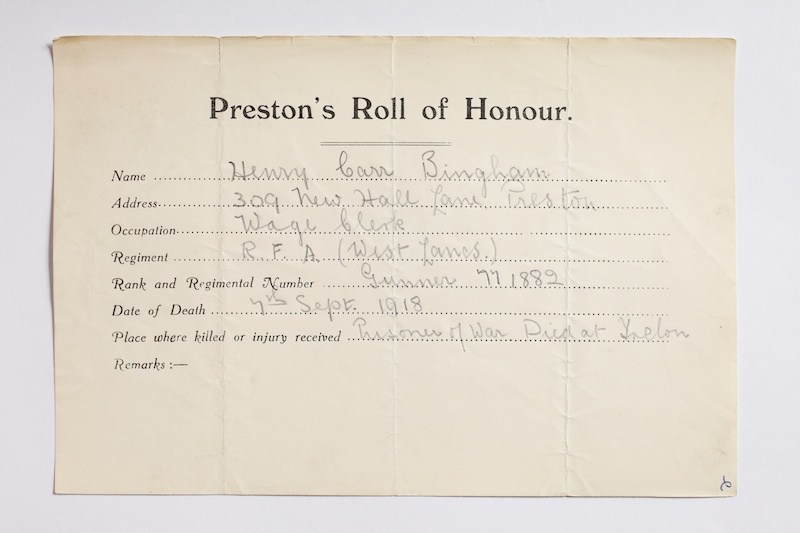 Preston's Roll of Honour.
Name Henry Carr Bingham
Address 309 New Hall Lane Preston
Occupation Wage Clerk
Regiment R. F. A (West Lancs.)
Rank and Regimental Number Gunner 771882
Date of Death 7th Sept. 1918
Place where killed or injury received Prisoner of War Died at Trelon
Remarks :—